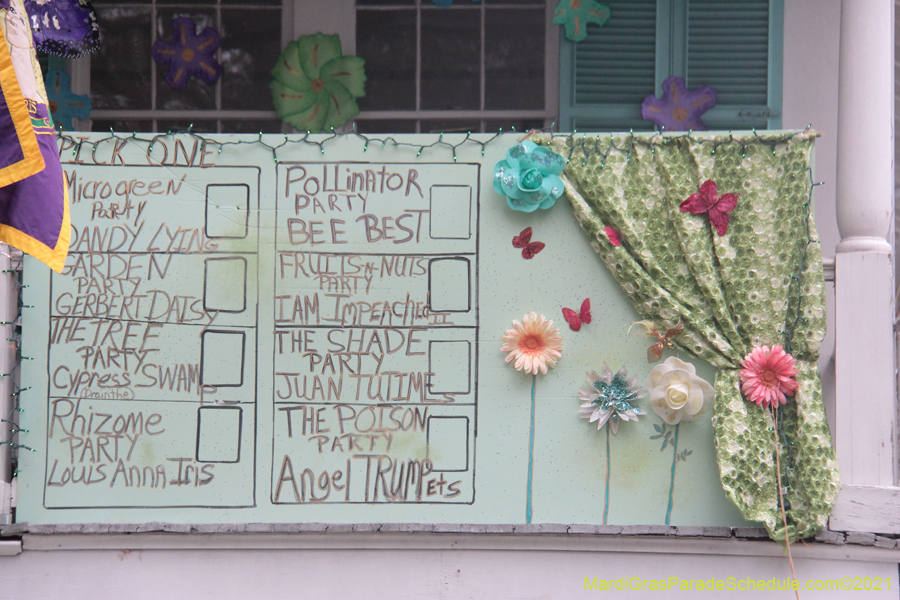 PICK ONE
Microgreen
PARTY
DANDY LYING
GARDEN
PARTY
GERBERT DAISY
THE TREE
PARTY
Cypress SWAMP
Rhizome
PARTY
Louis Anna Iris
PoLLinAtoR
PARTY
BEE BEST
FRUITS-N-NUTS
PARTY
IAM Impeached II
THE SHADE
PARTY
JUAN TUTIME
THE POISON
PARTY
Angel TRUMPets
MardiGrasParadeSchedule.com©2021